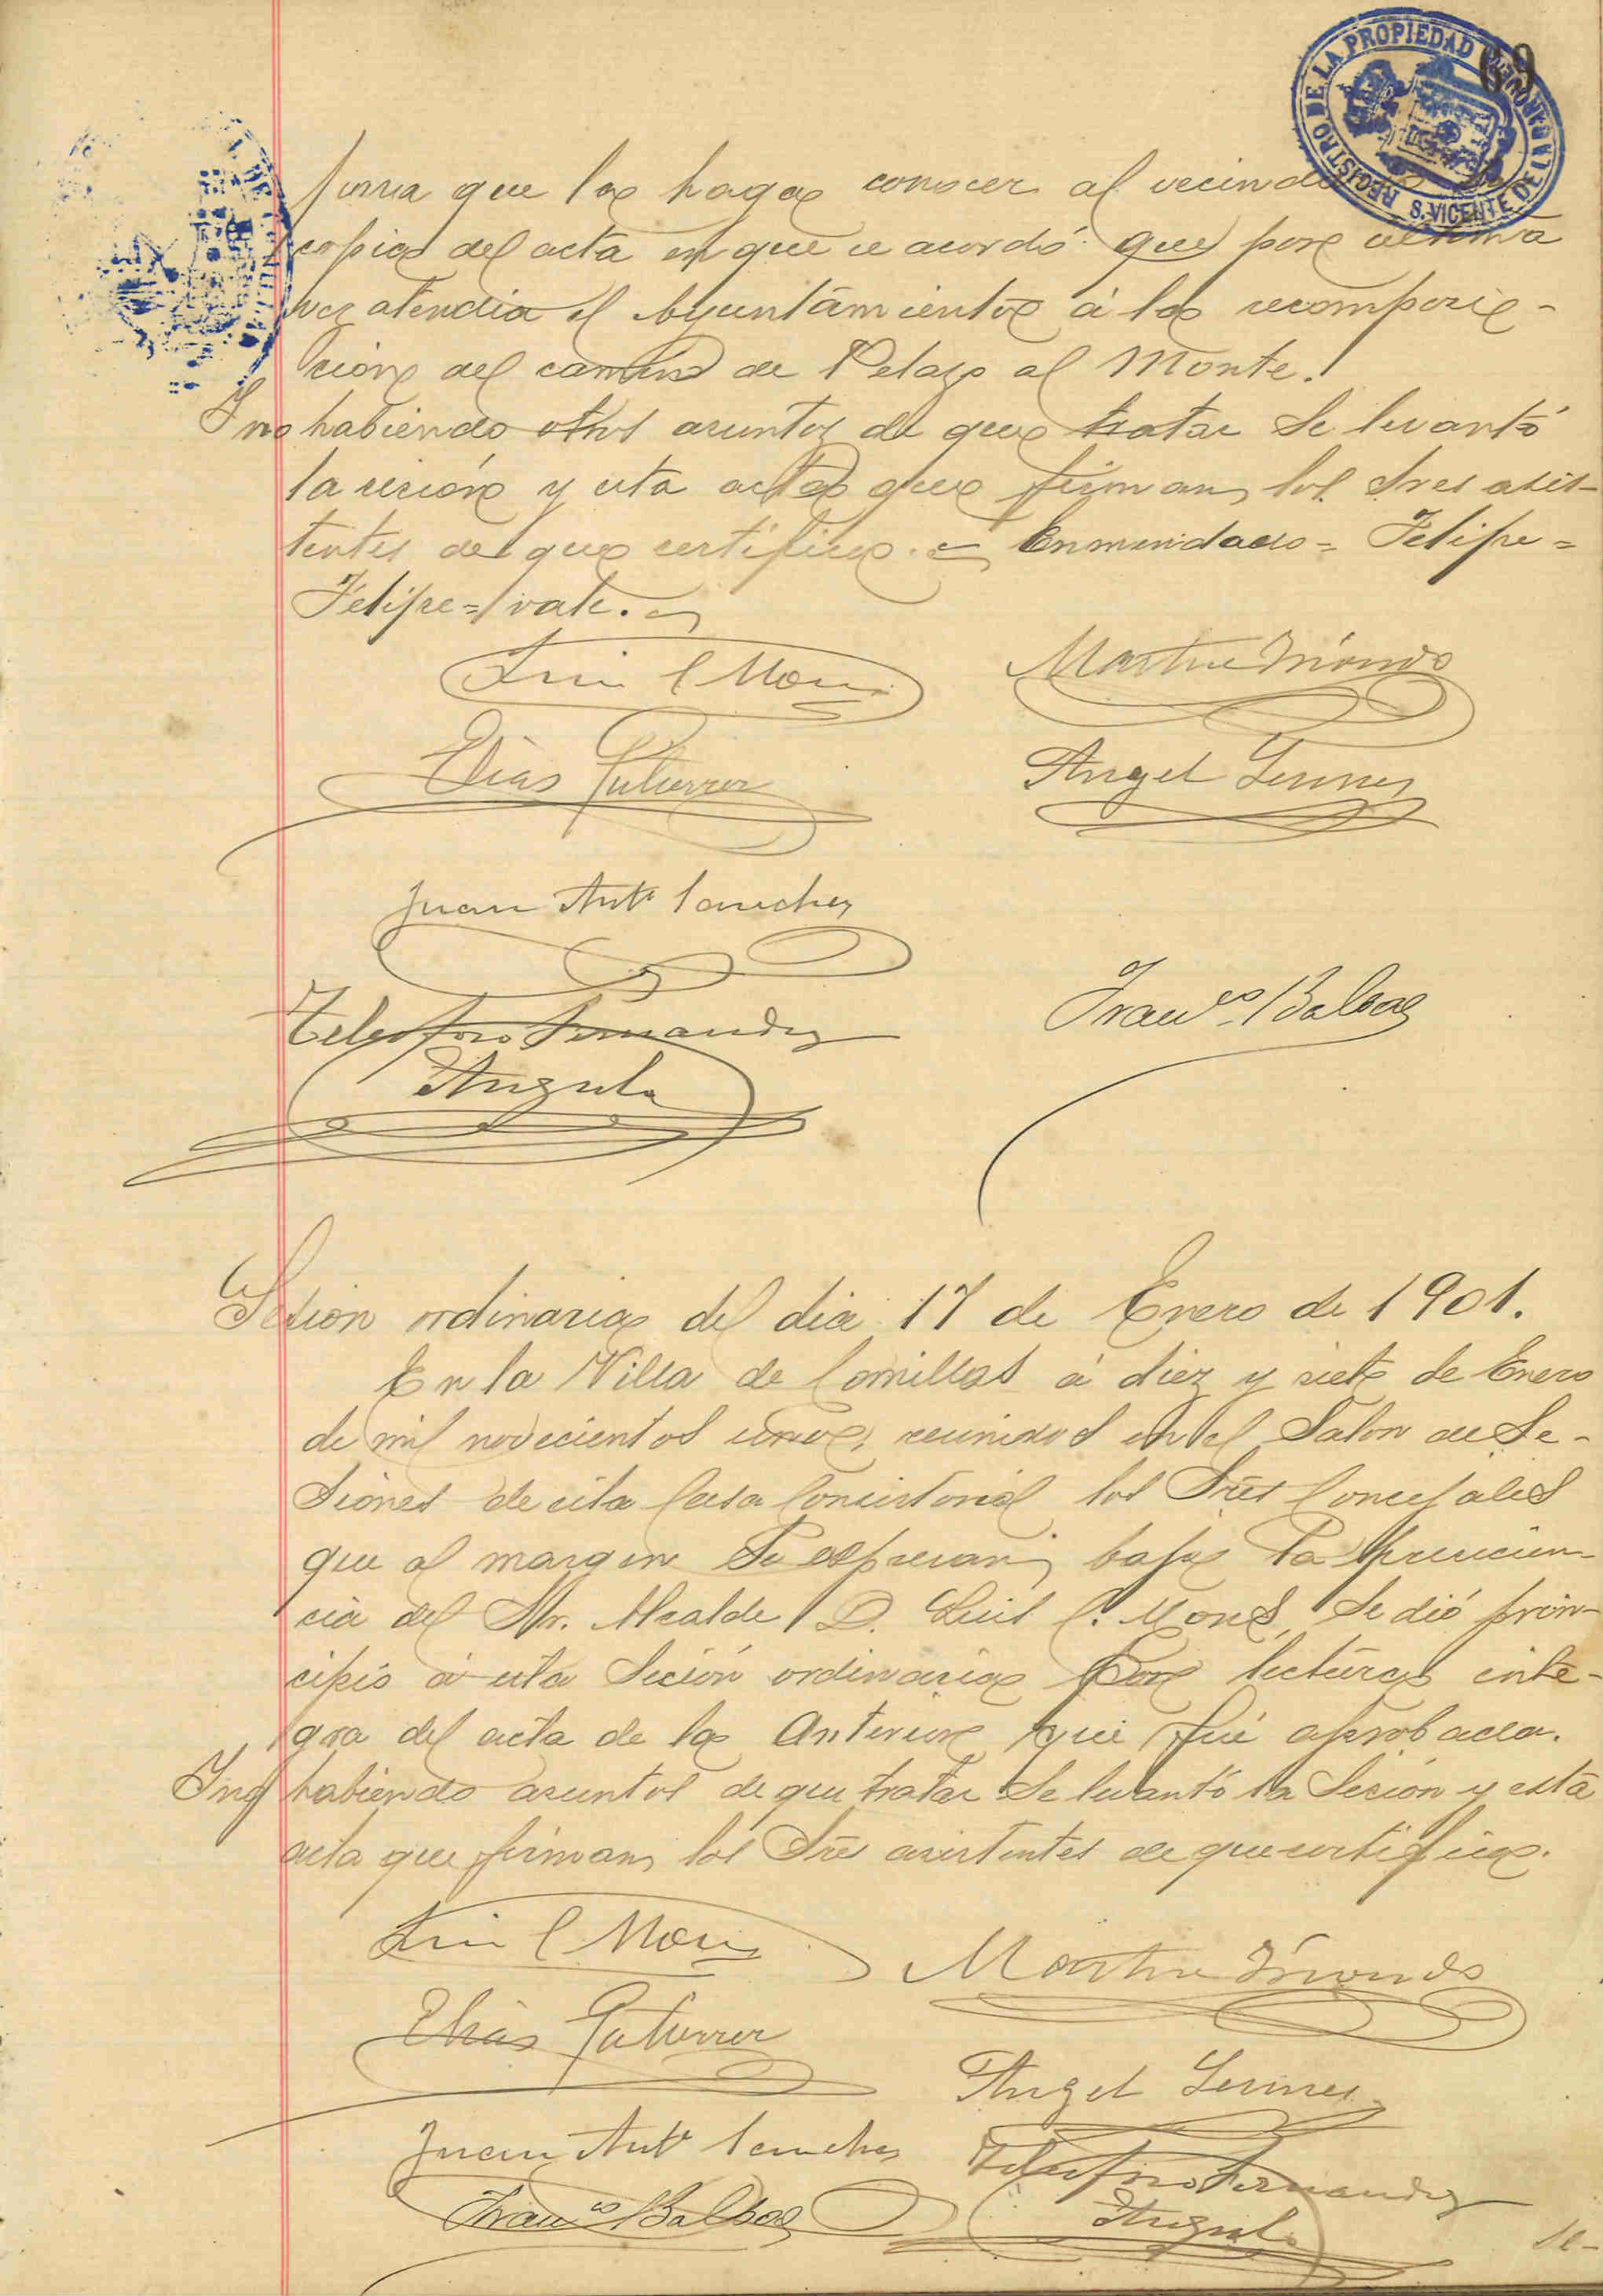 69
REGISTRO DE LA PROPIEDAD
S. VICENTE DE LA BARQUERA
forma que las haga conocer al
copia del acta en que se acordó que por ultima
vez atendia el Ayuntamiento á la recomposi-
cion del camino de Pelazo al Monte.
Y no habiendo otros asuntos de que tratar Se levantó
la sesión y esta acta que firman los Sres asis-
tentes de que certifico. = Enmendado = Felipe =
Felipe = vale.
Luis C Mons
Martin
Elias Gutierrez
Angel
Juan Antº Sanchez
Telesforo Fernandez
Angulo
Franco Balbas
Sesion ordinaria del dia 17 de Enero de 1901.
En la Villa de Comillas á diez y siete de Enero
de mil novecientos uno, reunidos en el Salon de Se-
siones de esta Casa Consistorial los Sres Concejales
que al margen Se espresan, bajo la
cia del Sr. Alcalde D. Luis C. Mons, Se dió prin-
cipio á esta Sesión ordinaria por lectura inte-
gra del acta de la Anterior que fué aprobada.
Y no habiendo asuntos de que tratar Se levantó la Sesión y esta
acta que firman los Sres asistentes de que certifico.
Luis C Mons
Martin
Elias Gutierrez
Angel
Juan Antº Sanchez
Telesforo Fernandez
Angulo
Franco Balbas
Se-